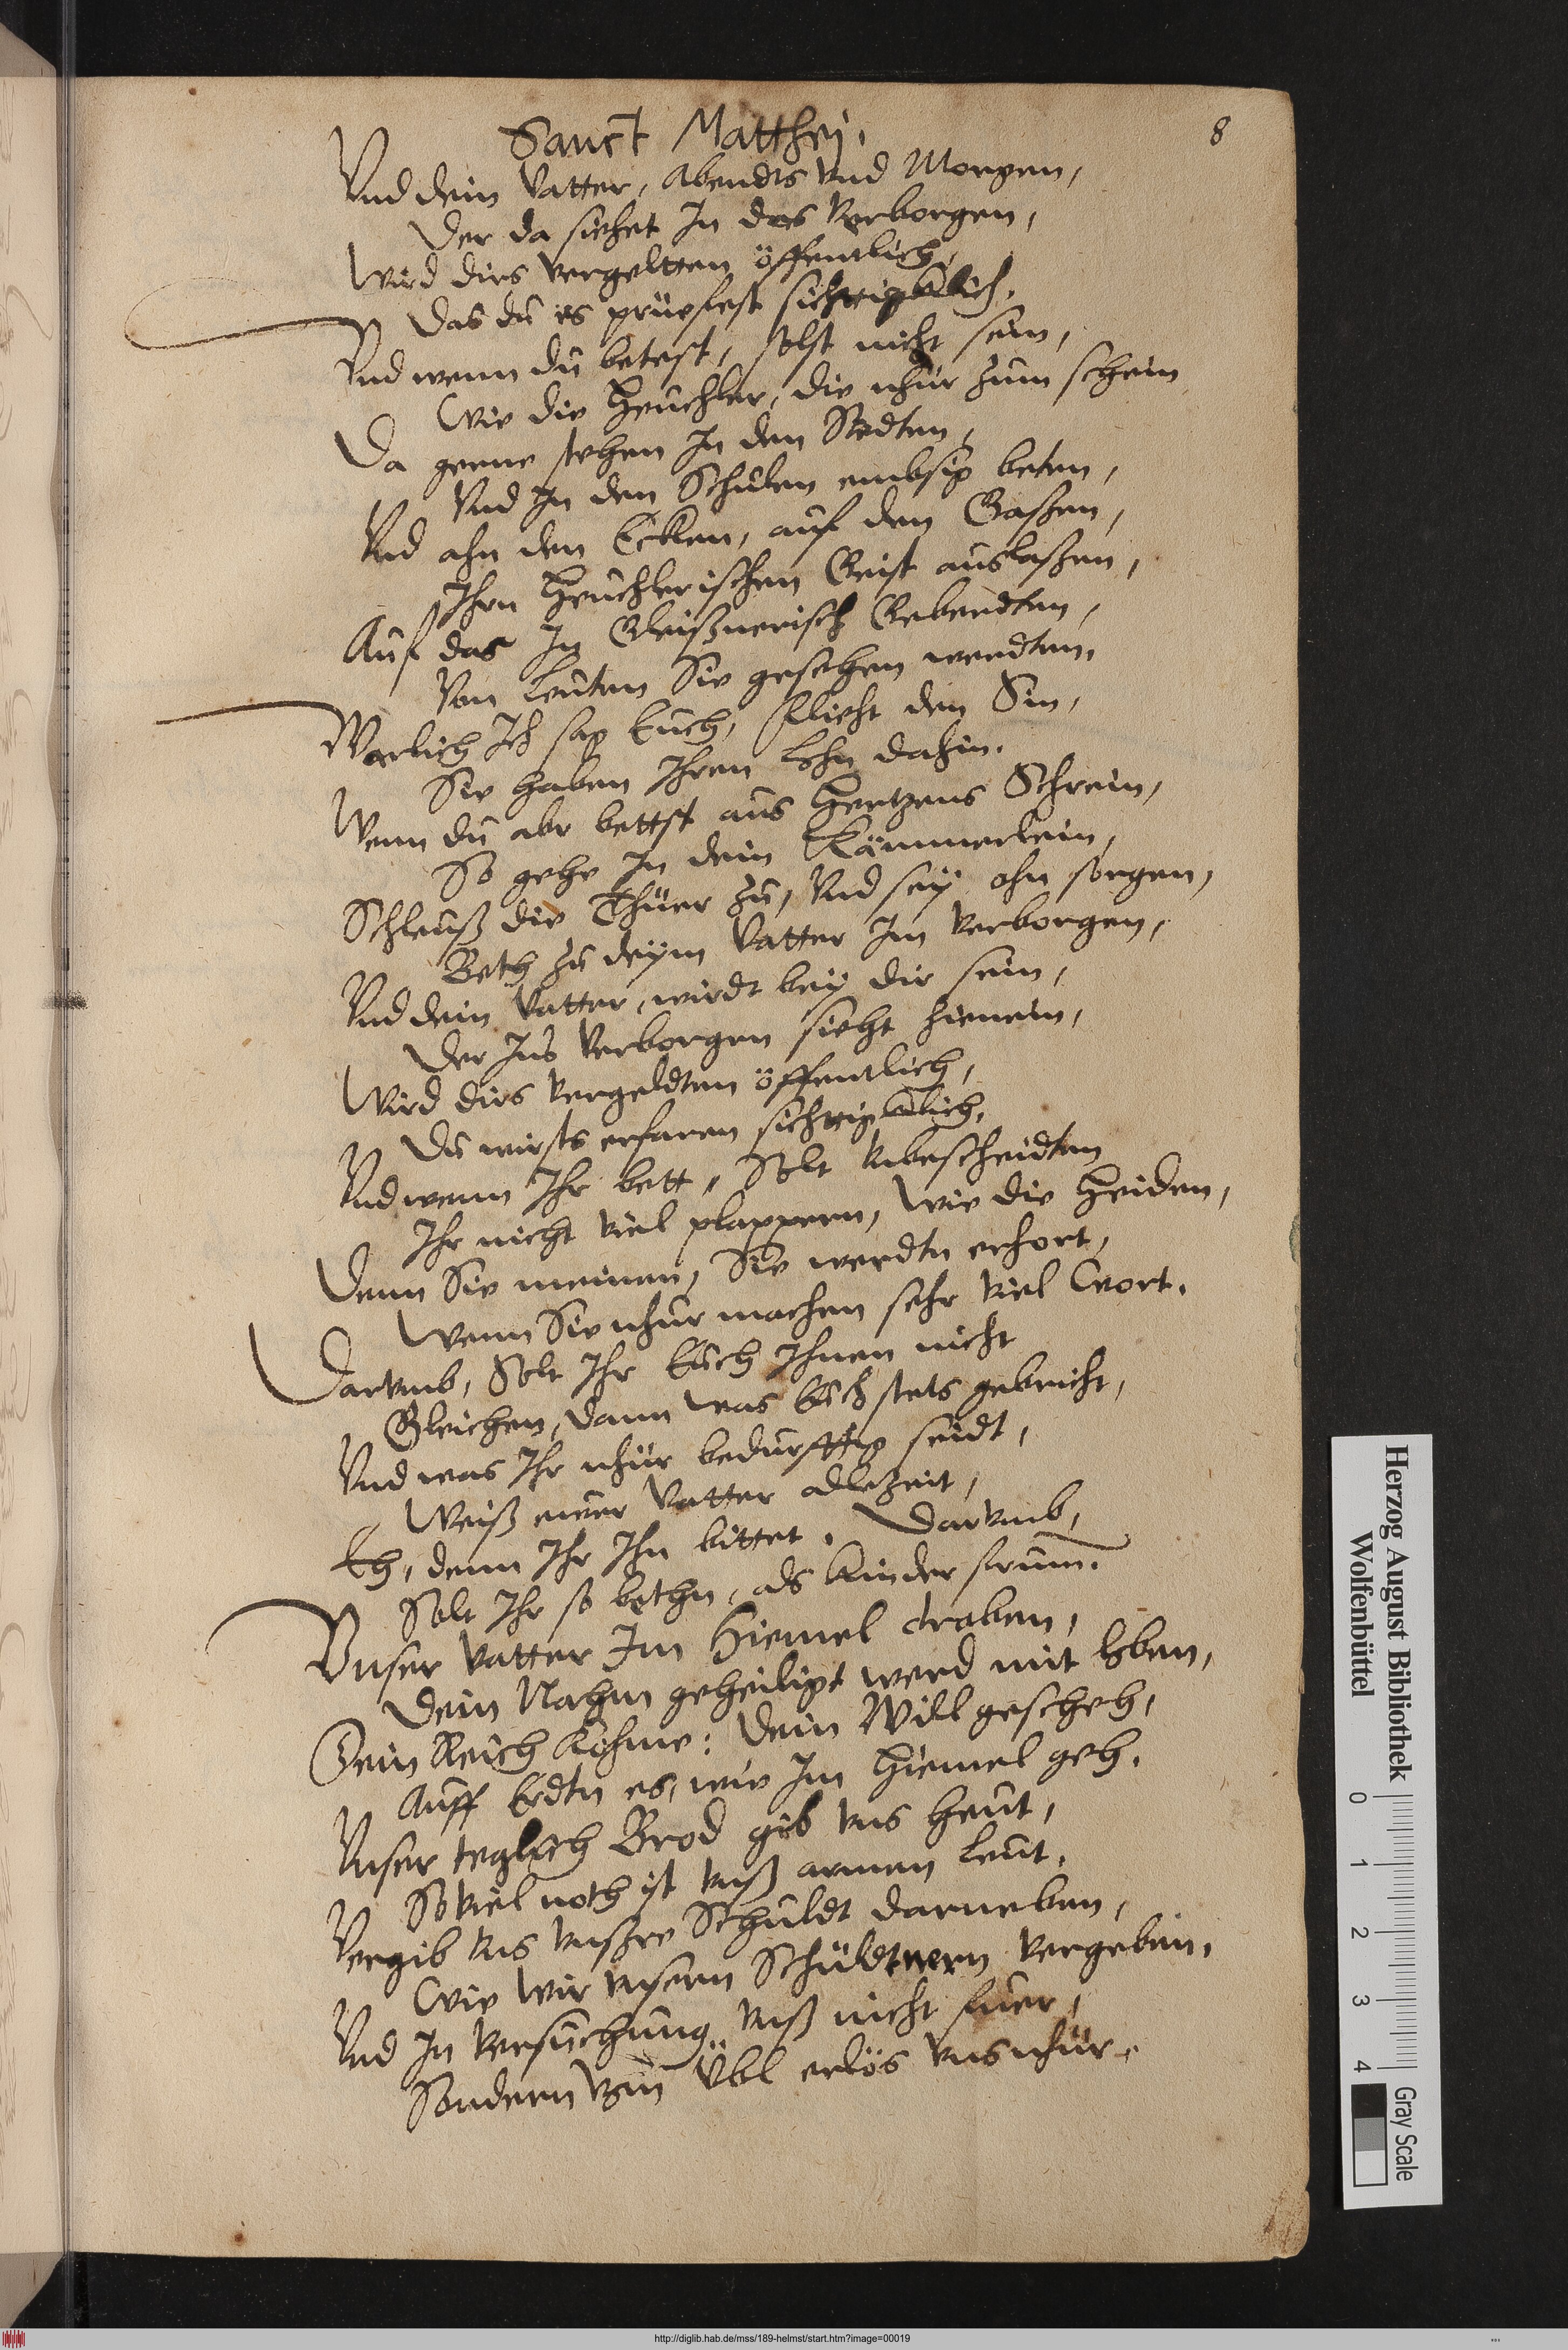 8
Sanct Matthej.
Vnd dein Vatter, Abendts vnd Morgen,
Der da siehet In das Verborgen,
Wird dirs vergeltten öffentlich,
Das du es prüefest sichtiglich.
Vnd wenn du betest, solst nicht sein,
Wie die Heuchler, die nhur zum schein
Da gerne stehen In den Stedten,
Vnd In den Schulen embsig beten,
Vnd ahn den Ecken, auf den Gaßen,
Ihrn Heuchlerischen Geist auslaßen,
Auf das In Gleißnerisch Geberdten,
Von Leuten Sie gesehen werdten.
Warlich Ich sag Euch, flieht den Sin,
Sie haben Ihren Lohn dahin.
Wenn du abr bettst aus Hertzens Schrein,
So gehe In dein Kämmerlein,
Schleuß die Thüer zu, Vnd sey ohn sorgen,
Beth zu deym Vatter Im verborgen,
Vnd dein Vatter, wirdt bey dir sein,
Der Ins Verborgen sieht hienein,
Wird dirs vergeldten öffentlich,
Du wirsts erfaren sichtiglich.
Vnd wenn Ihr bett, Solt vnbescheidten
Ihr nicht viel plappern, Wie die Heiden,
Denn Sie meinen, Sie werdtn erhort,
Wenn Sie nhur machen sehr viel Wort.
Darvmb, Solt Ihr Euch Ihnen nicht
Gleichen, Dann was Euch stets gebricht,
Vnd was Ihr nhur bedurfftig seidt,
Weiß ewer Vatter allezeit,
Eh, denn Ihr Ihn bittet. Darvmb,
Solt Ihr so bethn, als Kinder frum.
Vnser Vatter Im Hiemel droben,
Dein Nahm geheiligt werd mit Loben,
Dein Reich Kohme: Dein Will gescheh,
Auff Erdtn es, wie Im Hiemel geh.
Vnser teglich Brod gib vns heut,
So viel noth ist vnß armen Leut.
Vergib vns vnßre Schuldt darneben,
Wie wir vnsern Schüldtnern vergeben.
Vnd In versuchung vnß nicht fuer,
Sondern vom Übl erlös vns nhur.
Herzog August Bibliothek
Wolfenbüttel
0 1 2 3 4
Gray Scale
http://diglib.hab.de/mss/189-helmst/start.htm?image=00019